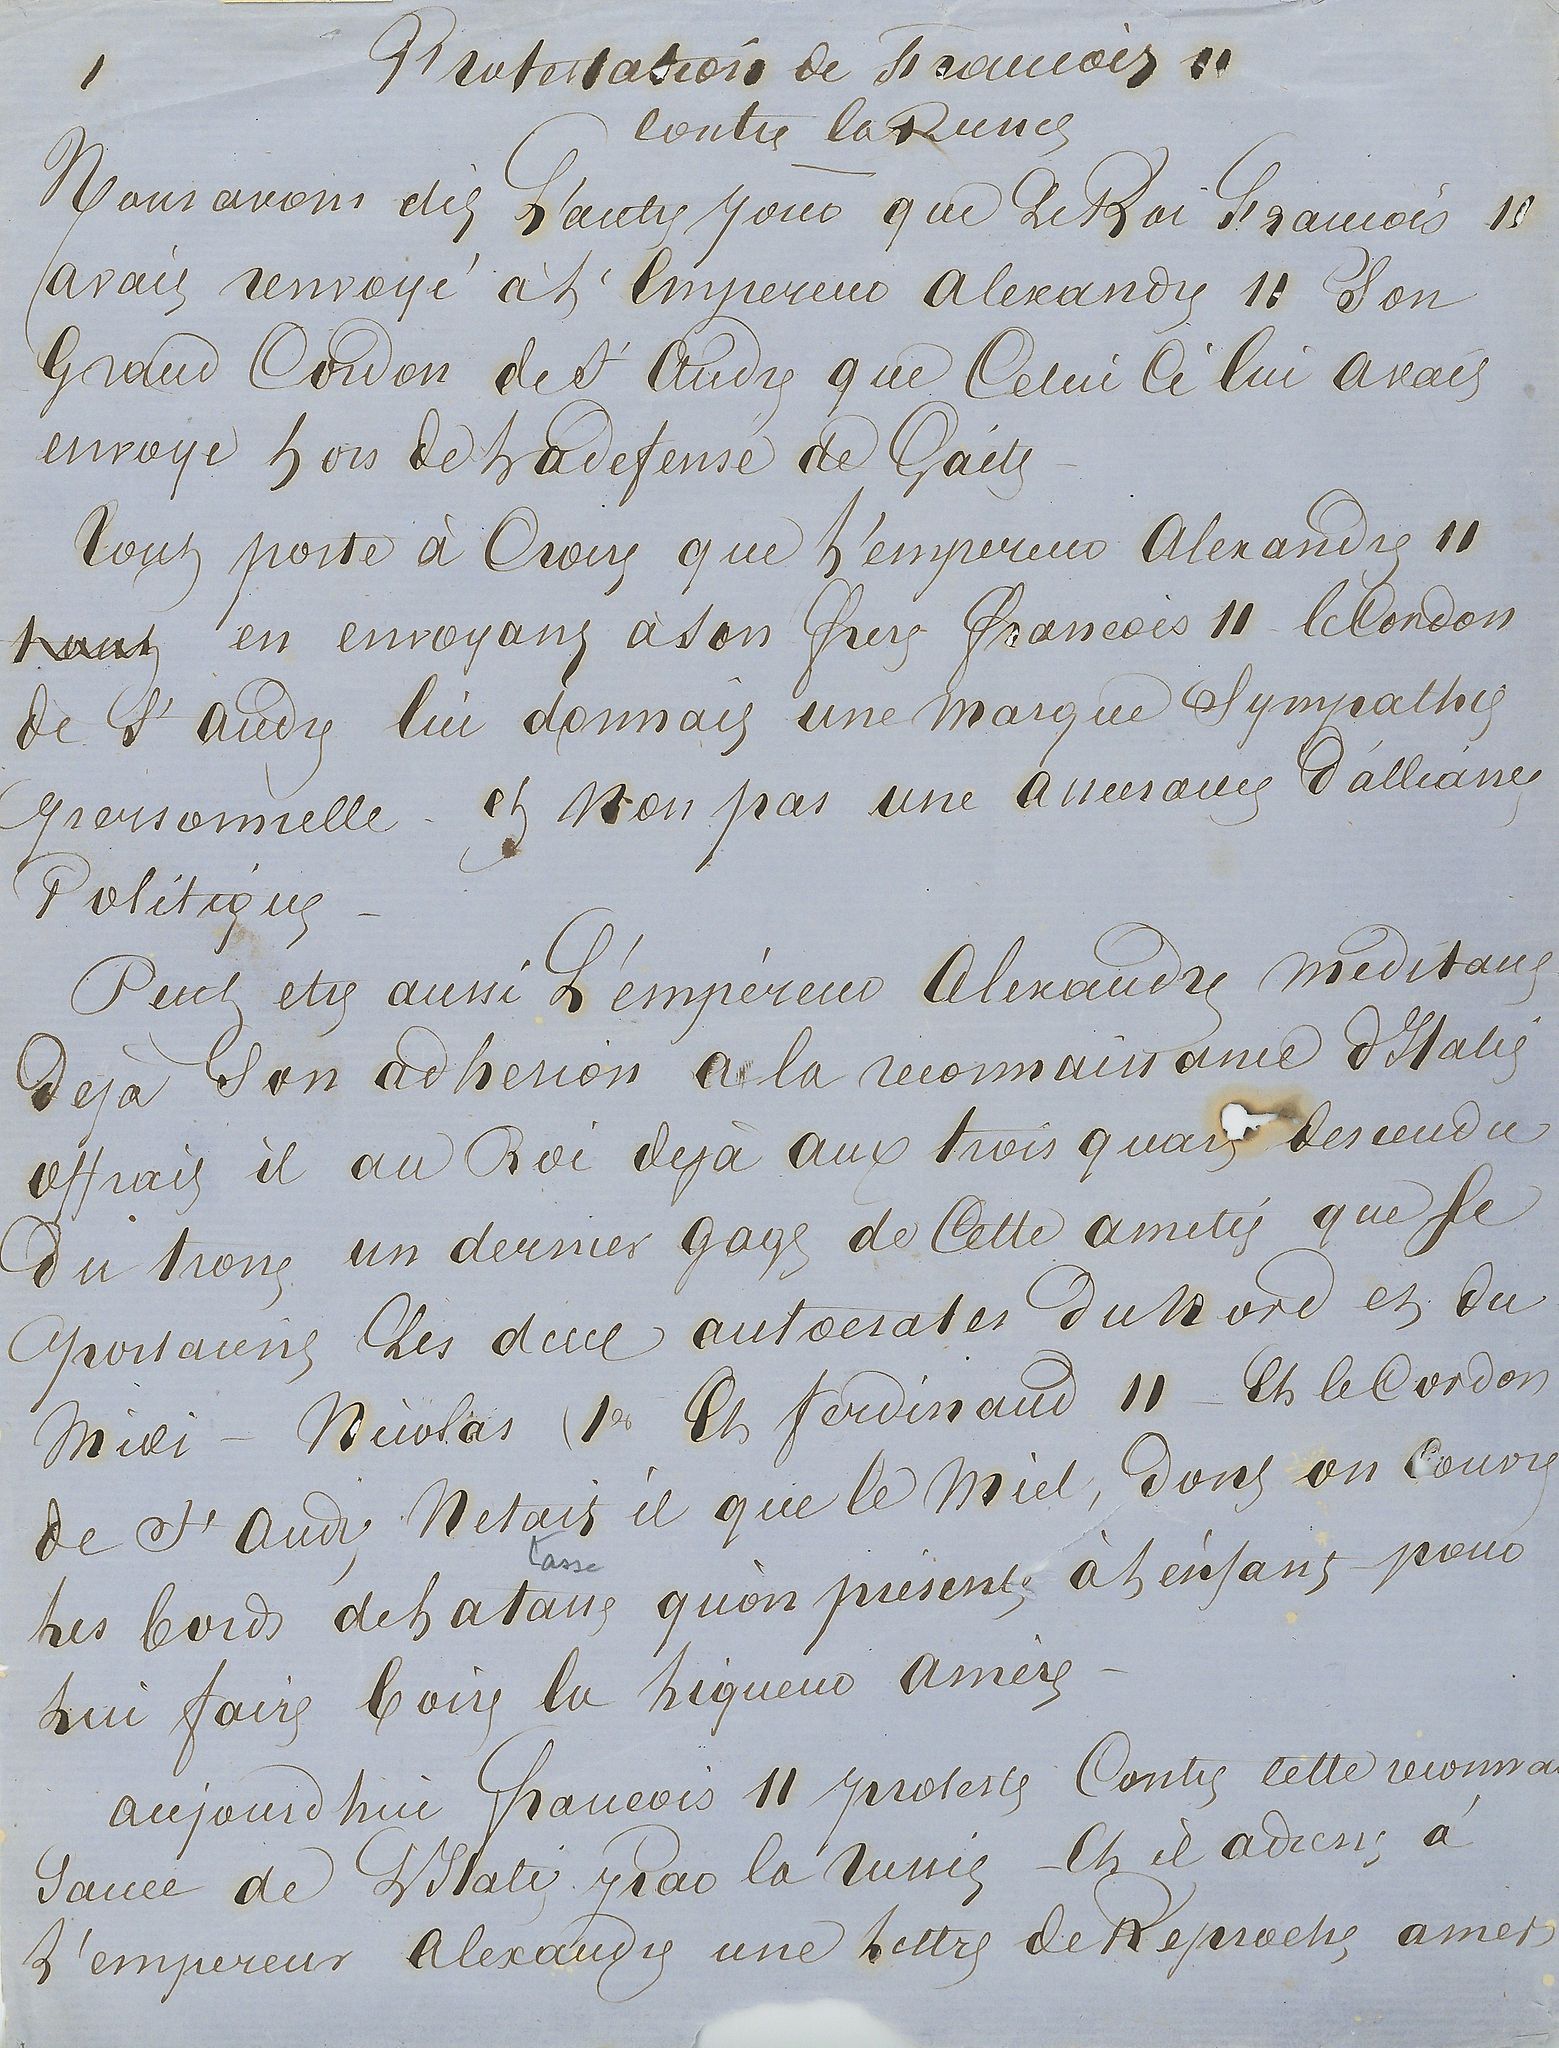 1 Protestation de François II
contre la Russie
Nous avons dit L'autre jour que Le Roi François II
avait renvoyé à L'Empereur Alexandre II Son
Grand Cordon de St André que Celui Ci lui avait
envoyé Lors de La defense de Gaëte -
Tout porte à Croire que L'empereur Alexandre II
tout en envoyant à Son frere françois II le Cordon
de St André lui donnait une marque Sympathie
personnelle - et non pas une assurance D'alliance
Politique -
Peut etre aussi L'empéreur Alexandre meditant
Dejà Son adhesion a la reconnaissance d'Italie
offrait il au Roi dejà aux trois quart descendu
Du trone un dernier gage de Cette ametié que Se
portaient Les deux autocrates Du Nord et du
Midi - Nicolas 1er Et ferdinand II - Et le Cordon
de St André Netait il que le Miel, Dont on Couvre
tasse
Les bords de La tasse qu'on présente à L'enfant pour
Lui faire boire la Liqueur amère -
aujourd hui françois II proteste Contre cette reconnai
Sance de L'Italie par la russie - Et il adresse à
L'empereur Alexandre une Lettre de Reproche amer